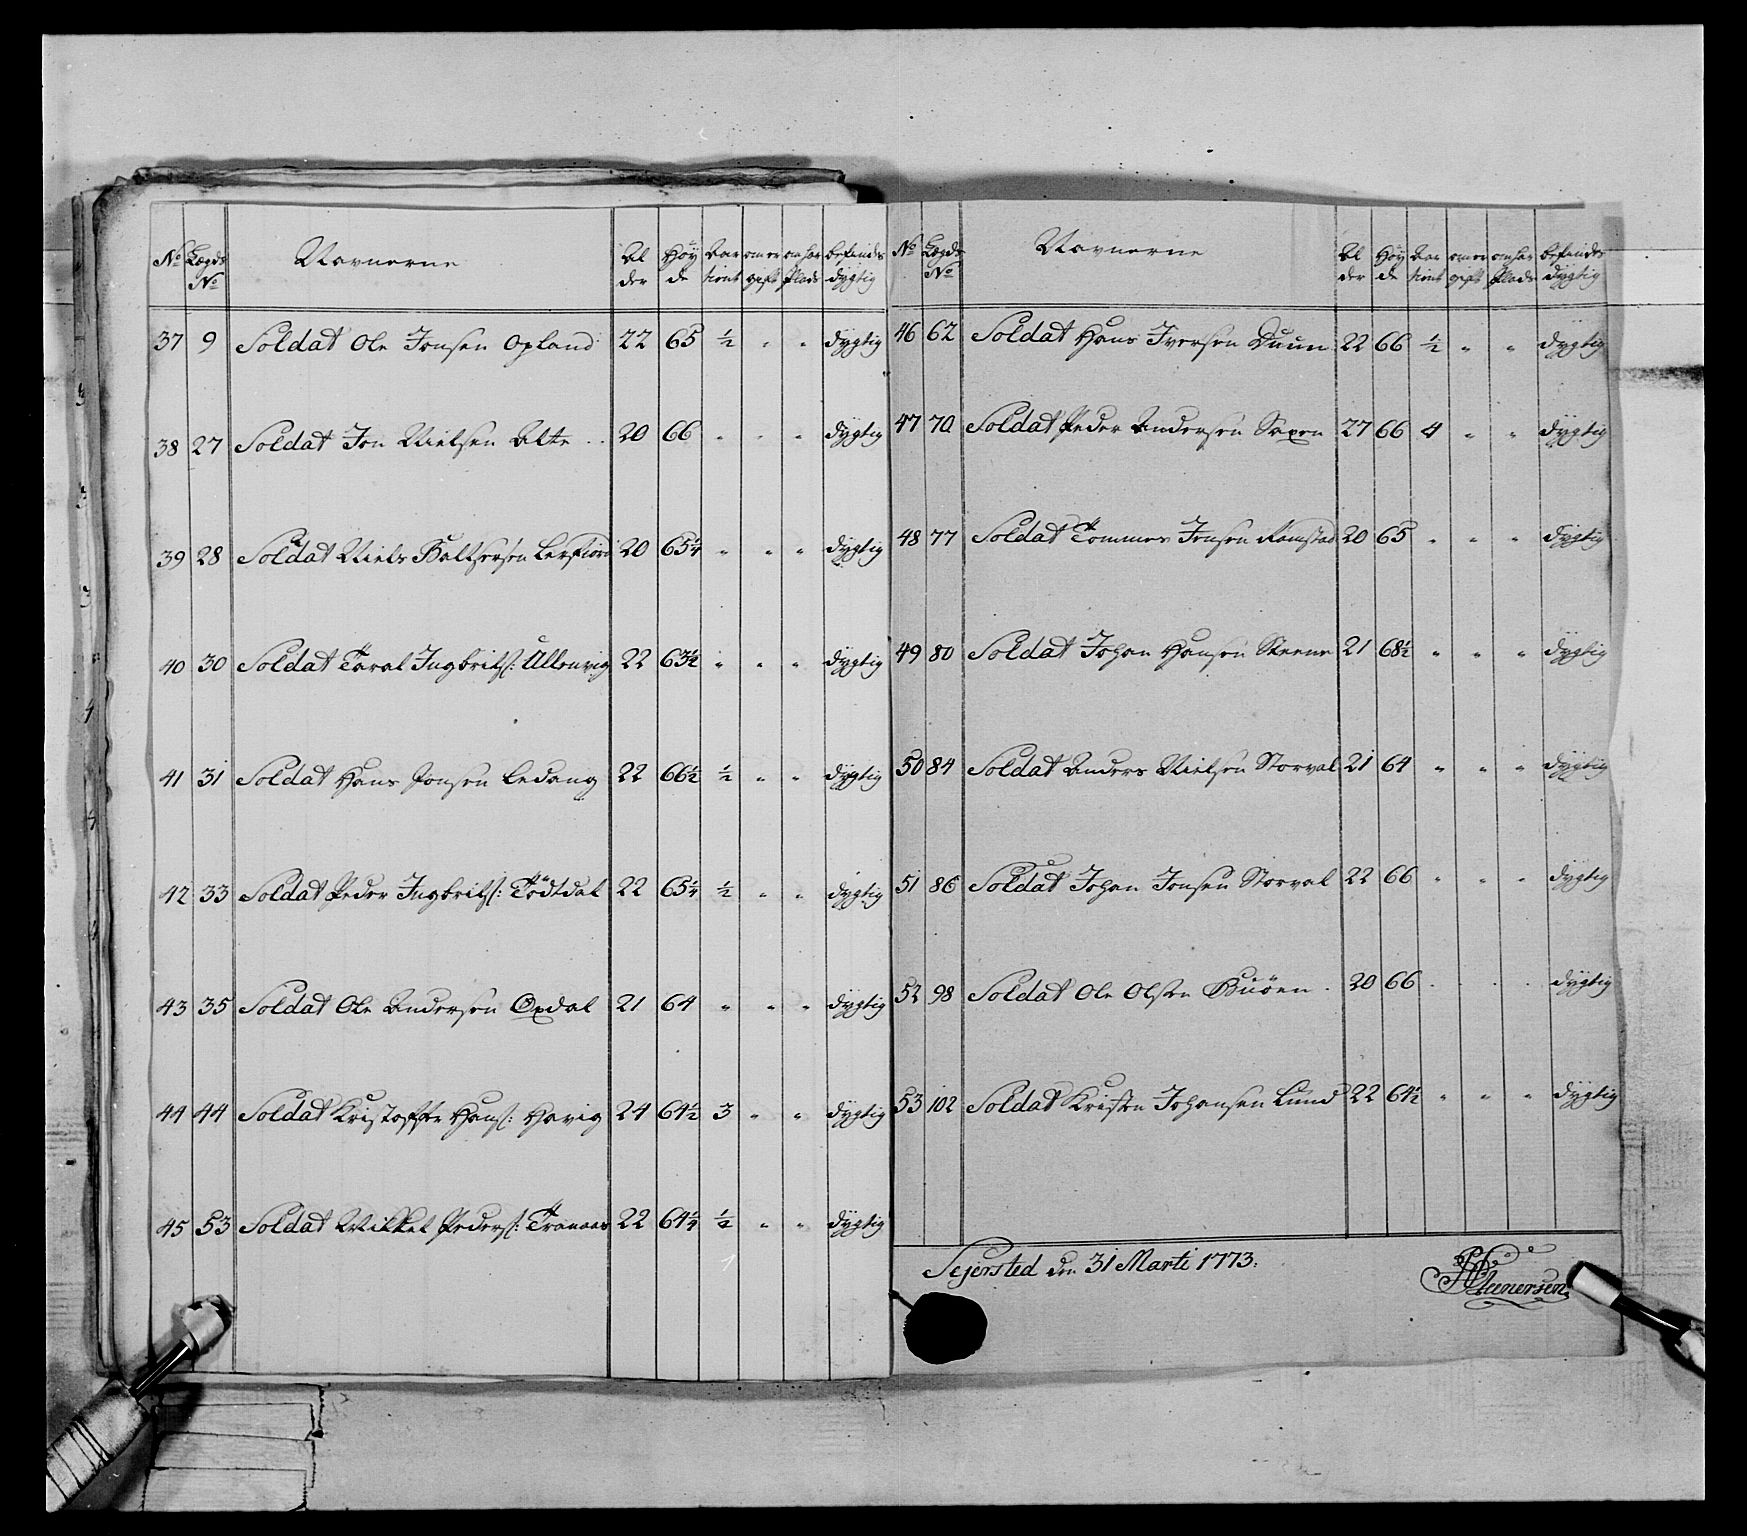 No Lægds No Navnerne Al der Høy de Aar tient om er gift om har Plads befindes dygtig
37 9 Soldat Ole Jonsen Opland 22 65 ½ " " dygtig
38 27 Soldat Jon Nielsen Alte 20 66 " " " dygtig
39 28 Soldat Niels Baltsersen Lerfiord 20 65¼ " " " dygtig
40 30 Soldat Taral Ingbrits: Ullenvig 22 63½ " " " dygtig
41 31 Soldat Hans Jonsen Ledang 22 66½ ½ " " dygtig
42 33 Soldat Peder Ingbrits: Tödtdal 22 65¼ ½ " " dygtig
43 35 Soldat Ole Andersen Oxdal 21 64 " " " dygtig
44 44 Soldat Kristoffer Hans: Havig 24 64½ 3 " " dygtig
45 53 Soldat Mikkel Peders: Tranaas 22 64¼ ½ " " dygtig
No Lægds No Navnerne Al der Høy de Aar tient om er gift om har Plads befindes dygtig
46 62 Soldat Hans Iversen Duun 22 66 ½ " " dygtig
47 70 Soldat Peder Andersen Saxen 27 66 4 " " dygtig
48 77 Soldat Tommes Jensen Ramstad 20 65 " " " dygtig
49 80 Soldat Johan Hansen Steene 21 68½ " " " dygtig
50 84 Soldat Anders Nielsen Storval 21 64 " " " dygtig
51 86 Soldat Johan Jonsen Storval 22 66 " " " dygtig
52 98 Soldat Ole Olsen Buöen 20 66 . . . dygtig
53 102 Soldat Kristen Johansen Lund 22 64½ " " " dygtig
Sejersted den 31 Marti 1773.